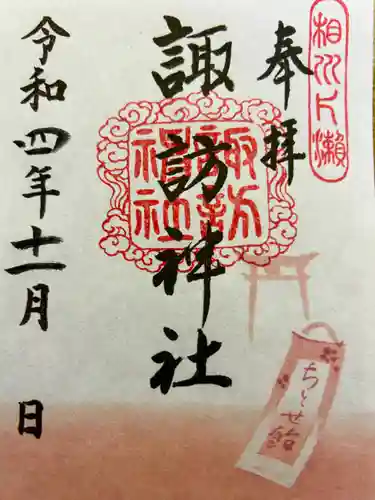 相州片瀬
奉拝
諏訪神社
諏訪神社
令和四年十一月 日
ちとせ飴